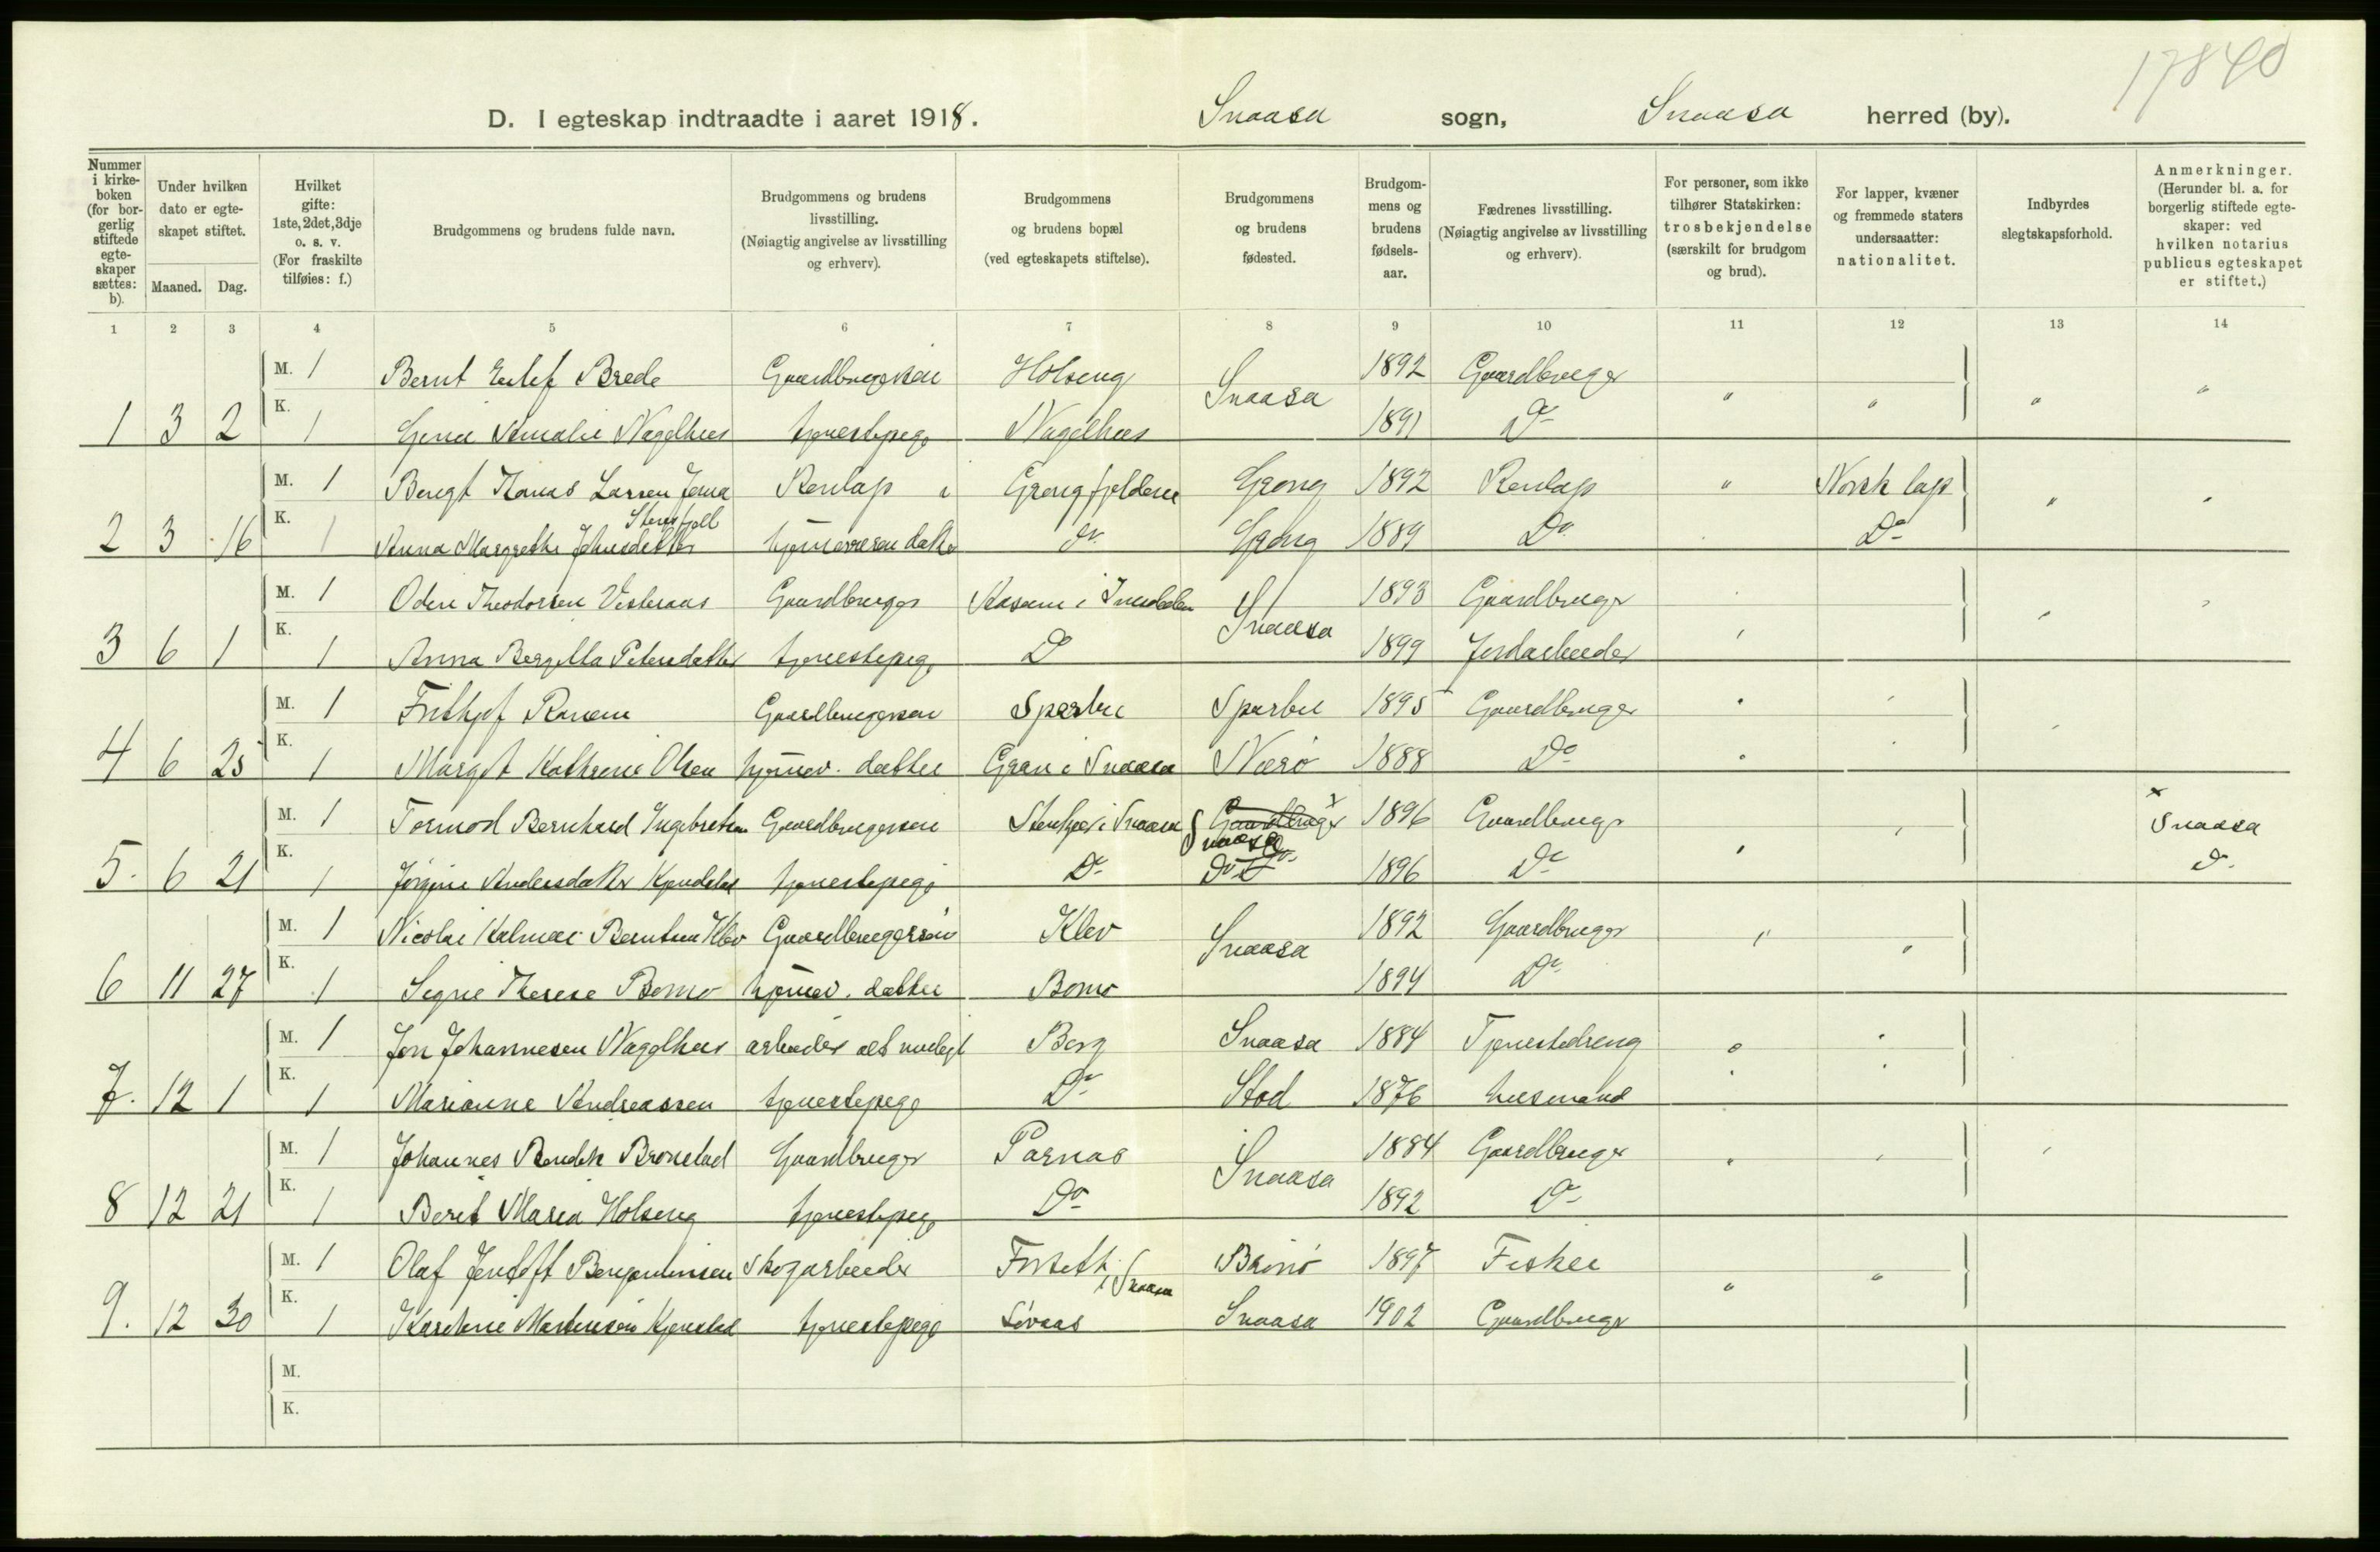 17840
D. I egteskap indtraadte i aaret 1918. Snaasa sogn, Snaasa herred (by).
Nummer i kirkeboken (for borgerlig stiftede egteskaper sættes: b).
Under hvilken dato er egteskapet stiftet.
Maaned. Dag.
Hvilket gifte: 1ste, 2det, 3dje o. s. v. (For fraskilte tilføies: f.)
Brudgommens og brudens fulde navn.
Brudgommens og brudens livsstilling. (Nøiagtig angivelse av livsstilling og erhverv).
Brudgommens og brudens bopæl (ved egteskapets stiftelse).
Brudgommens og brudens fødested.
Brudgommens og brudens fødselsaar.
Fædrenes livsstilling. (Nøiagtig angivelse av livsstilling og erhverv).
For personer, som ikke tilhører Statskirken: trosbekjendelse (særskilt for brudgom og brud).
For lapper, kvæner og fremmede staters undersaatter: nationalitet.
Indbyrdes slegtskapsforhold.
Anmerkninger. (Herunder bl. a. for borgerlig stiftede egteskaper: ved hvilken notarius publicus egteskapet er stiftet.)
1 2 3 4 5 6 7 8 9 10 11 12 13 14
M. 1 Bernt Brede Holseng Snaasa 1892 Gaardbruger " " " "
1 3 2 K. 1 Amalie Nagelhus tjenestepige Nagelhus 1891 Do
M. 1 Bengt Larsen Joma Renlap i Grongfjeldene Grong 1892 Renlap " Norsk lap " "
Stenfjell
2 3 16 K. 1 Anna Margrethe Johnsdatter hjemmeværen datter do Grong 1889 Do Do
M. 1 Oden Theodorsen Vesteraas Gaardbruger i Snaasa 1893 Gaardbruger
3 6 1 K. 1 Anna Bergitta Petersdatter tjenestepige Do 1899 Jordarbeider
M. 1 Frithjof Gaardbrugersøn Sparbu Sparbu 1895 Gaardbruger
4 6 25 K. 1 Margit Kathrine Olsen hjemmev. datter Gran i Snaasa Nærø 1888 Do
M. 1 Tormod Bernhard Ingebretsen Gaardbrugersøn i Snaasa Gaardbruger x Snaasa 1896 Gaardbruger x Snaasa
5. 6 21 K. 1 Jørgine Andersdatter tjenestepige Do Do 1896 Do Do
M. 1 Nicolai Kalmar Berntsen Klev Gaardbrugersøn Klev Snaasa 1892 Gaardbruger " "
6 11 27 K. 1 Signe Therese Bomo hjemmev. datter Bomo 1894 Do
M. 1 Jon Johannesen Nagelhus arbeider alt mulegt Berg Snaasa 1884 Tjenestedreng
7. 12 1 K. 1 Marianne Andreassen tjenestepige Do Stod 1876 husmand
M. 1 Johannes Bendik Brønstad Gaardbruger Parnas Snaasa 1884 Gaardbruger
8 12 21 K. 1 Berit Maria Holseng tjenestepige Do 1892 Do
M. 1 Olaf Jentoft Benjaminsen Skogarbeider i Snaasa 1897 Fisker " "
9. 12 30 K. 1 Martinsen Kjenstad tjenestepige Løvaas Snaasa 1902 Gaardbruger
M.
K.